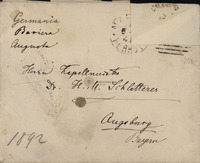 Germania
Baviera
Augusta
Herrn Kapellmeister
Dr. H. M. Schletterer
Augsburg
Bayern
1892